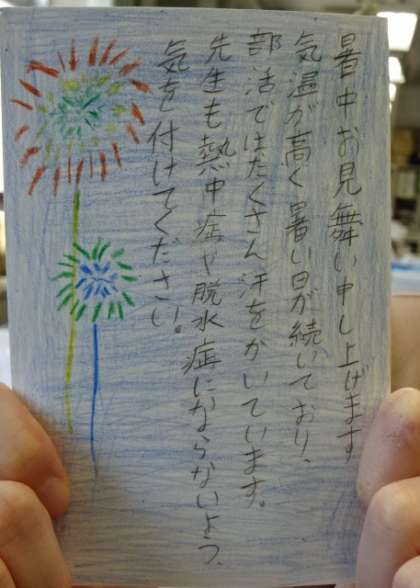 暑中お見舞い申し上げます
気温が高く暑い日が続いており、
部活ではたくさん汗をかいています。
先生も熱中症や脱水症にならないよう、
気を付けてください。